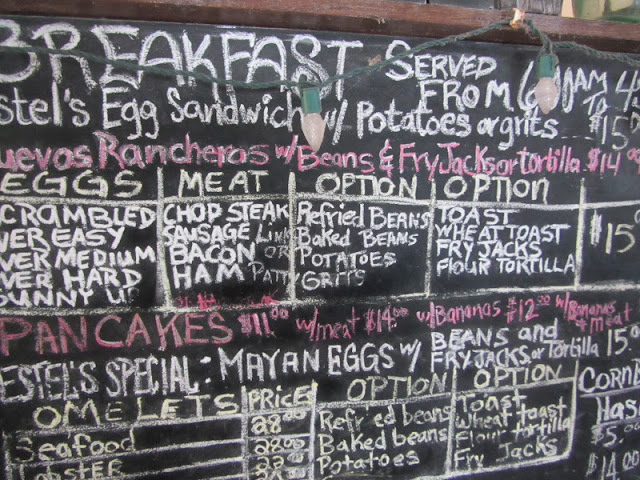 BREAKFAST SERVED
FROM 6:00AM TO
Estel's Egg Sandwich w/ Potatoes or grits $15
uevos Rancheros w/Beans & Fry Jacks or tortilla $14
EGGS MEAT OPTION OPTION
SCRAMBLED CHOP STEAK Refried BEANS TOAST
VER EASY SAUSAGE LINK Baked BEANS WHEAT TOAST $15
VER MEDIUM BACON OR POTATOES FRY JACKS
VER HARD HAM PATTY GRITS FLOUR TORTILLA
SUNNY UP
PANCAKES $11.00 w/meat $14.00 w/Bananas $12.00 w/Bananas + meat
ESTEL'S SPECIAL: MAYAN EGGS w/ BEANS and FRY JACKS or Tortilla 15.
OMELETS PRICES OPTION OPTION CORN
Seafood 28.00 Refried beans Toast Has
LOBSTER 28.00 Baked beans Wheat toast $5.00
Potatoes Flour tortilla
Fry Jacks $14.00